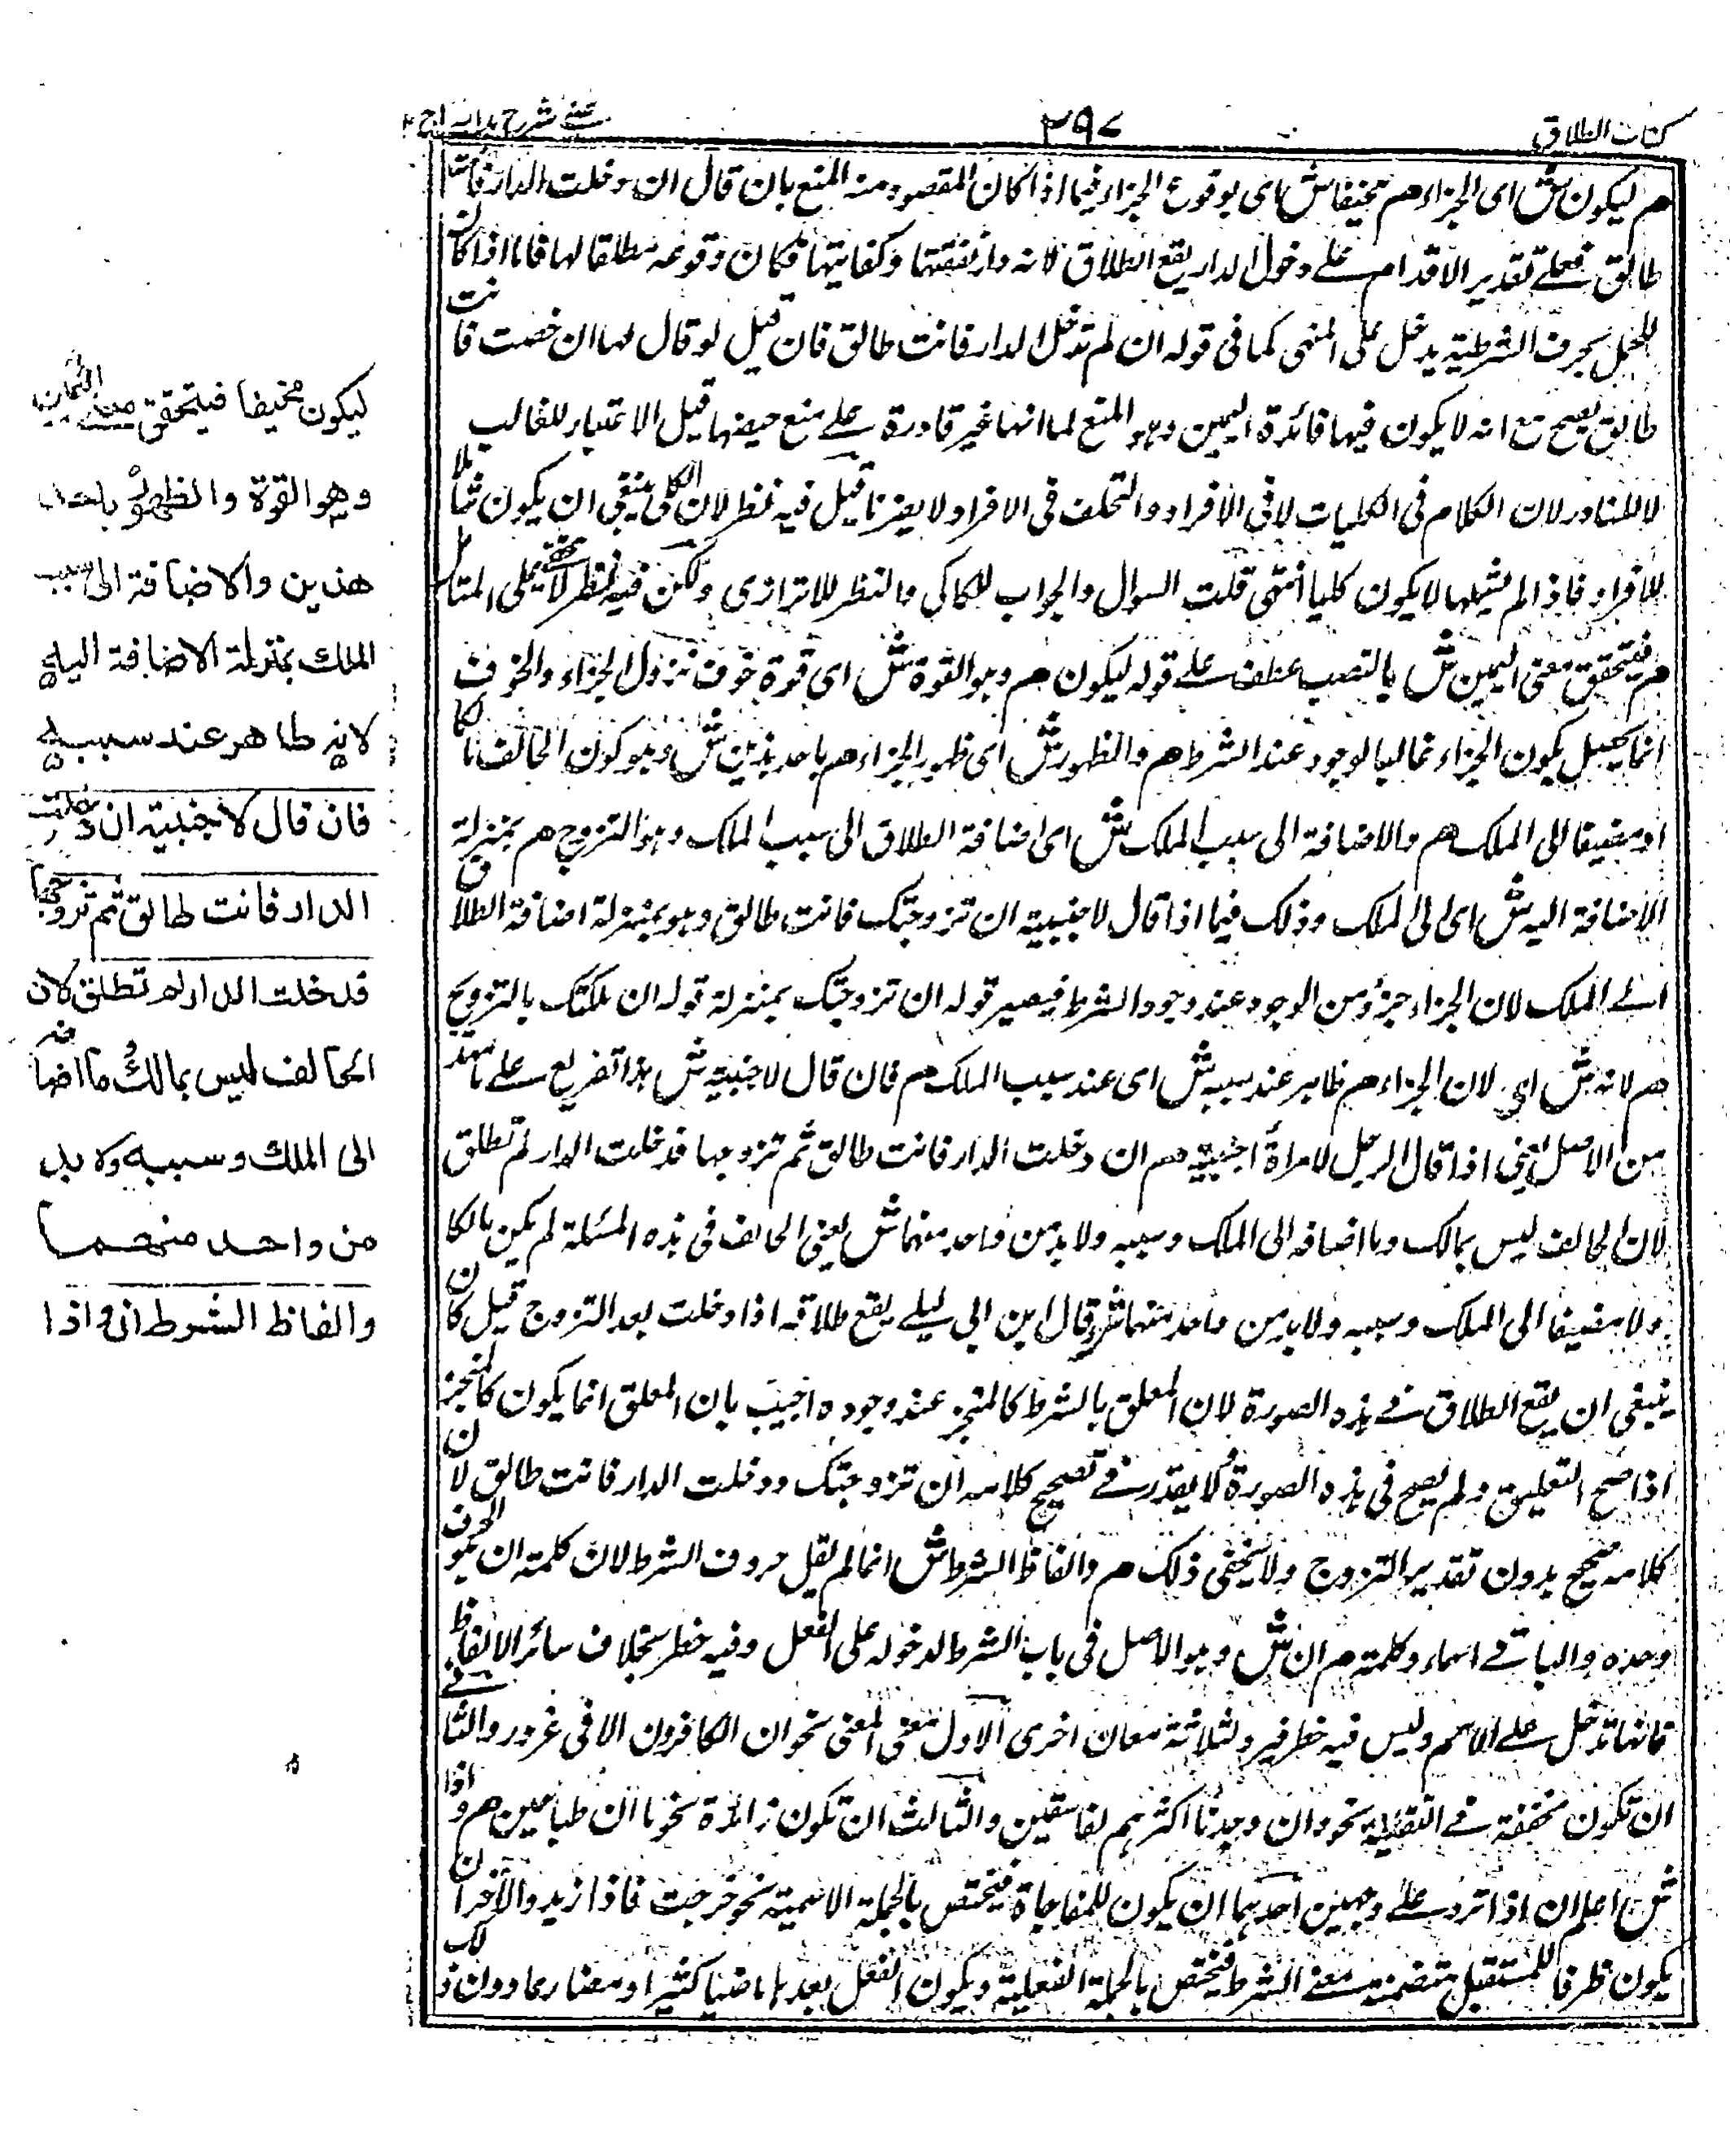 كتاب الطلاق
٣٩٧
عينى شرح هدايه ج ٢
هم ليكون ش اى الجزاء هم مخيفا ش اى بوقوع الجزاء فيما اذا كان المقصود منه المنع بان قال ان دخلت الدار فانت
طالق فعلى تقدير الاقدام على دخول الدار يقع الطلاق لانه دار نفقتها وكفايتها فكان وقوعه مطلقا لها فاما اذا كان
للحمل بحرف الشرطية يدخل على المنهى كما فى قوله ان لم تدخل الدار فانت طالق فان قيل لو قال لها ان حضت فانت
طالق يصح مع انه لا يكون فيها فائدة اليمين وهو المنع لما انها غير قادرة على منع حيضها قيل الاعتبار للغالب
لا للنادر لان الكلام فى الكليات لا فى الافراد والتخلف فى الافراد لا يضرنا قيل فيه نظر لان الكلى ينبغى ان يكون شاملا
للافراد فاذا لم يشملها لا يكون كليا انتهى قلت السوال والجواب للكاكى والنظر للاترازى ولكن فيه نظر لا يخفى على المتامل
هم فيتحقق معنى اليمين ش بالنصب عطف على قوله ليكون هم وهو القوة ش اى قوة خوف نزول الجزاء والخوف
انما يحصل بكون الجزاء غالبا لوجود عند الشرط هم والظهور ش اى ظهور الجزاء هم باحد هذين ش وهو كون الحالف مالكا
او مضيفا الى الملك هم والاضافة الى سبب الملك ش اى اضافة الطلاق الى سبب الملك وهو التزوج هم بمنزلة
الاضافة اليه ش اى الى الملك وذلك فيما اذا قال لاجنبية ان تزوجتك فانت طالق وهو بمنزلة اضافة الطلاق
الى الملك لان الجزاء جزؤ من الوجود عند وجود الشرط فيصير قوله ان تزوجتك بمنزلة قوله ان ملكتك بالتزويج
هم لانه ش اى لان الجزاء هم ظاهر عند سببه ش اى عند سبب الملك هم فان قال لاجنبية ش هذا تفريع على ما مهد
من الاصل يعنى اذا قال الرجل لامرأة اجنبية هم ان دخلت الدار فانت طالق ثم تزوجها فدخلت الدار لم تطلق
لان الحالف ليس بمالك وما اضافه الى الملك وسببه ولا بد من واحد منهما ش يعنى الحالف فى هذه المسئلة لم يكن مالكا
ولا مضيفا الى الملك وسببه ولا بد من واحد منهما ش وقال ابن ابى ليلى يقع طلاقه اذا دخلت بعد التزوج قيل كان
ينبغى ان يقع الطلاق فى هذه الصورة لان المعلق بالشرط كالمنجز عند وجوده اجيب بان المعلق انما يكون كالمنجز
اذا صح التعليق ولم يصح فى هذه الصورة لا يقدر فى تصحيح كلامه ان تزوجتك ودخلت الدار فانت طالق لان
كلامه صحيح بدون تقدير التزوج ولا يخفى ذلك هم والفاظ الشرط ش انما لم يقل حروف الشرط لان كلمته ان هو الحرف
وحده والباقى اسماء وكلمته هم ان ش وهو الاصل فى باب الشرط لدخوله على الفعل وفيه خطر بخلاف سائر الالفاظ
فانها تدخل على الاسم وليس فيه خطر فيه ولثلاثة معان اخرى الاول معنى نحو ان الكافرون الا فى غرور والثانى
ان تكون مخففة من الثقيلة نحو وان وجدنا اكثرهم لفاسقين والثالث ان تكون زائدة نحو ما ان طبا هم واذا
ش اعلم ان اذا ترد على وجهين احدهما ان يكون للمفاجاة فيختص بالجملة الاسمية نحو خرجت فاذا زيد والآخر ان
يكون ظرفا للمستقبل متضمنة معنى الشرط فيختص بالجملة الفعلية ويكون الفعل بعدها ماضيا كثيرا ومضارعا دون ذلك
ليكون مخيفا فيتحقق معنى اليمين
وهو القوة والظهور باحد
هذين والاضافة الى سبب
الملك بمنزلة الاضافة اليه
لانه ظاهر عند سببه
فان قال لاجنبية ان دخلت
الدار فانت طالق ثم تزوجها
فدخلت الدار لم تطلق لان
الحالف ليس بمالك وما اضافه
الى الملك وسببه ولا بد
من واحد منهما
والفاظ الشرط ان واذا